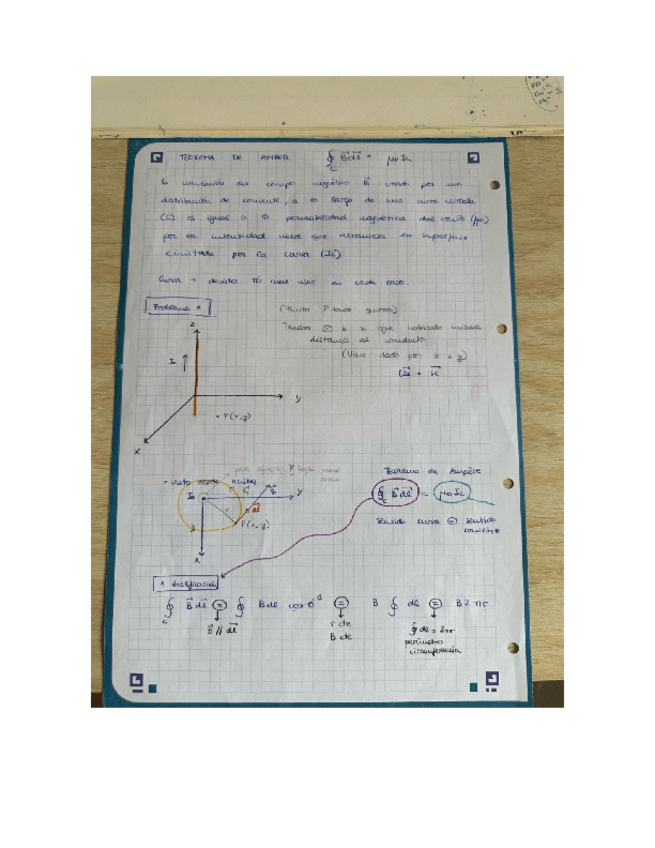 TEOREMA DE AMPER ∮C B⃗ dl⃗ = μ0 Ic
La circulación del campo magnético B⃗ creado por una
distribución de corriente, a lo largo de una curva cerrada
(C) es igual a la permeabilidad magnética del vacío (μ0)
por la intensidad neta que atraviesa la superficie
limitada por la curva (Ic)
Curva → decides tú cual usar en cada caso.
Problema 1
(Punto P donde quieras)
distancia al conductor
(Viene dado por x e y)
z
I
y
P(x,y)
x
• Visto desde arriba
I
B⃗
y
r
dl⃗
P(x,y)
x
Teorema de Ampère
∮C B⃗ dl⃗ = μ0 Ic
Sentido curva = sentido
corriente
1 Justificación
∮C B⃗ dl⃗ = ∮ B dl cos 0 = B ∮ dl = B 2πr
B⃗ // dl⃗
r cte
B cte
∮ dl = 2πr
perímetro
circunferencia